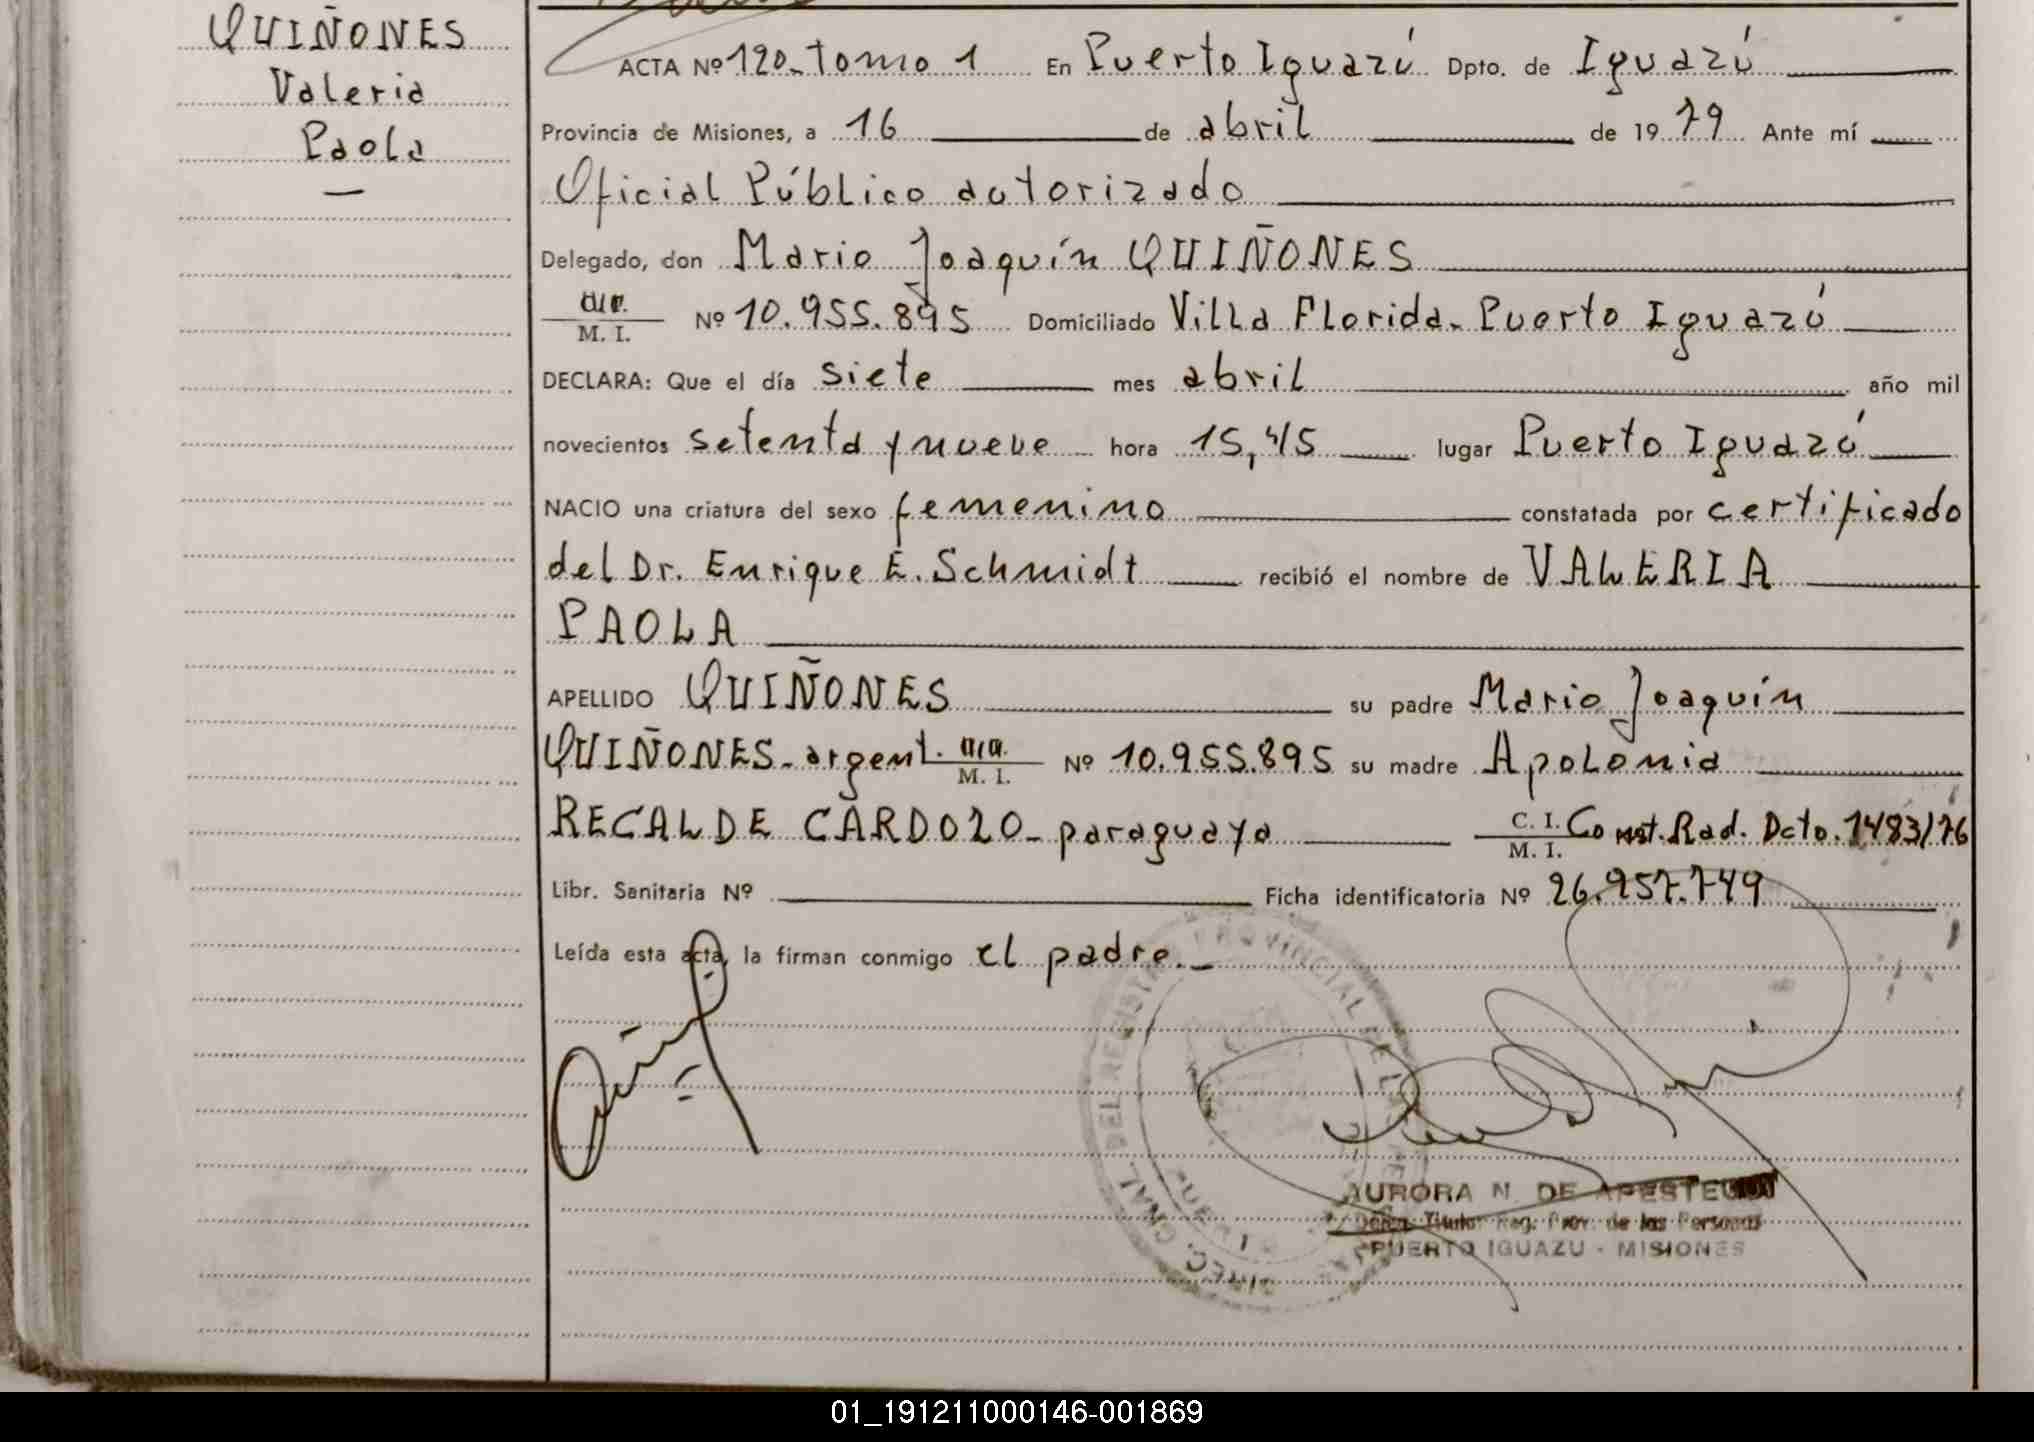 QUIÑONES
Valeria
Paola
ACTA Nº 120 - Tomo 1 En Puerto Iguazú Dpto. de Iguazú
Provincia de Misiones, a 16 de abril de 1979 Ante mí
Oficial Público autorizado
Delegado, don Mario Joaquín QUIÑONES
M. I. Nº 10.955.895 Domiciliado Villa Florida - Puerto Iguazú
DECLARA: Que el día siete mes abril año mil
novecientos setenta y nueve hora 15,45 lugar Puerto Iguazú
NACIO una criatura del sexo femenino constatada por certificado
del Dr. Enrique E. Schmidt recibió el nombre de VALERIA
PAOLA
APELLIDO QUIÑONES su padre Mario Joaquín
QUIÑONES - argent. M. I. Nº 10.955.895 su madre Apolonia
RECALDE CARDOZO - paraguaya C. I. M. I. Const. Rad. Dcto. 1483/76
Libr. Sanitaria Nº Ficha identificatoria Nº 26.957.749
Leída esta acta, la firman conmigo el padre.-
DIREC. GRAL. DEL REGISTRO PROVINCIAL DE LAS
AURORA N. DE APESTEGUI
Titular Reg. Prov. de las Personas
PUERTO IGUAZU - MISIONES
01_191211000146-001869